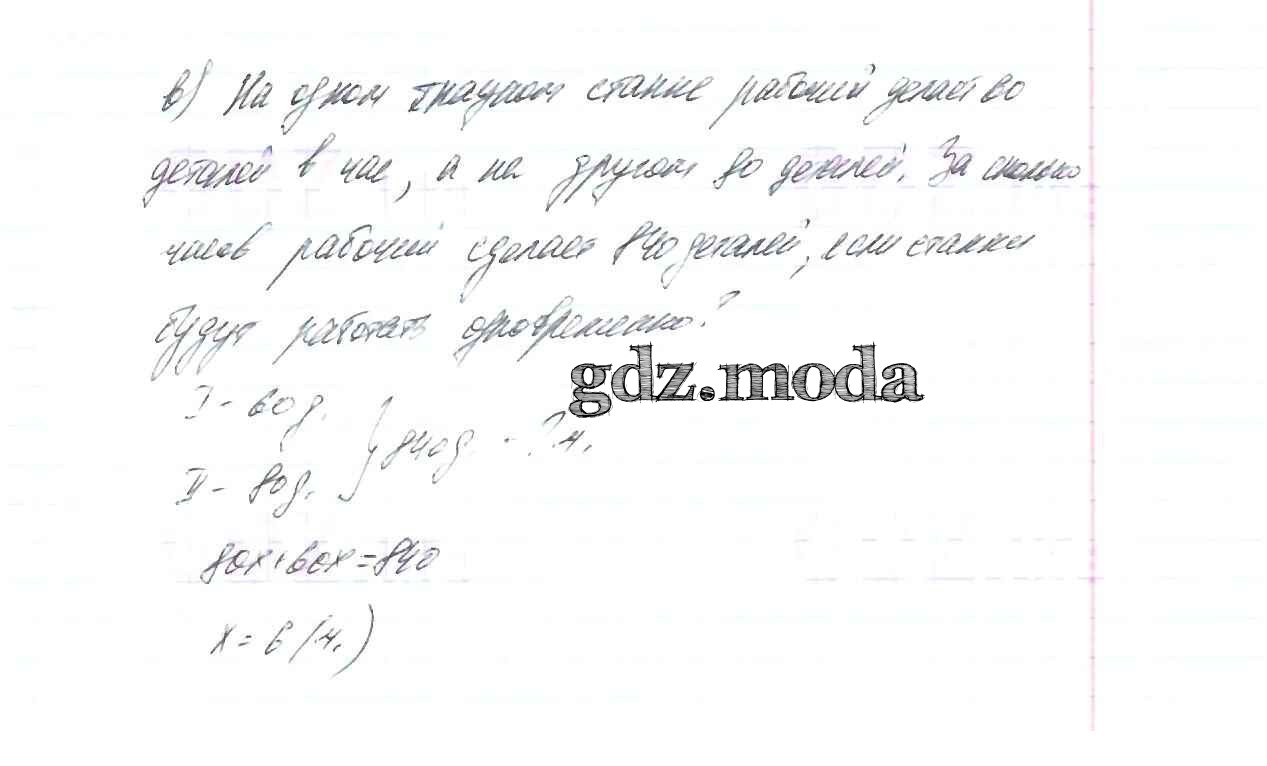 в) На одном станке рабочий делает 60
деталей в час, а на другом 80 деталей. За сколько
часов рабочий сделает 840 деталей, если станки
будут работать одновременно?
gdz.moda
I - 60 д.
} 840 д. - ? ч.
II - 80 д.
80x+60x=840
x = 6 (ч.)